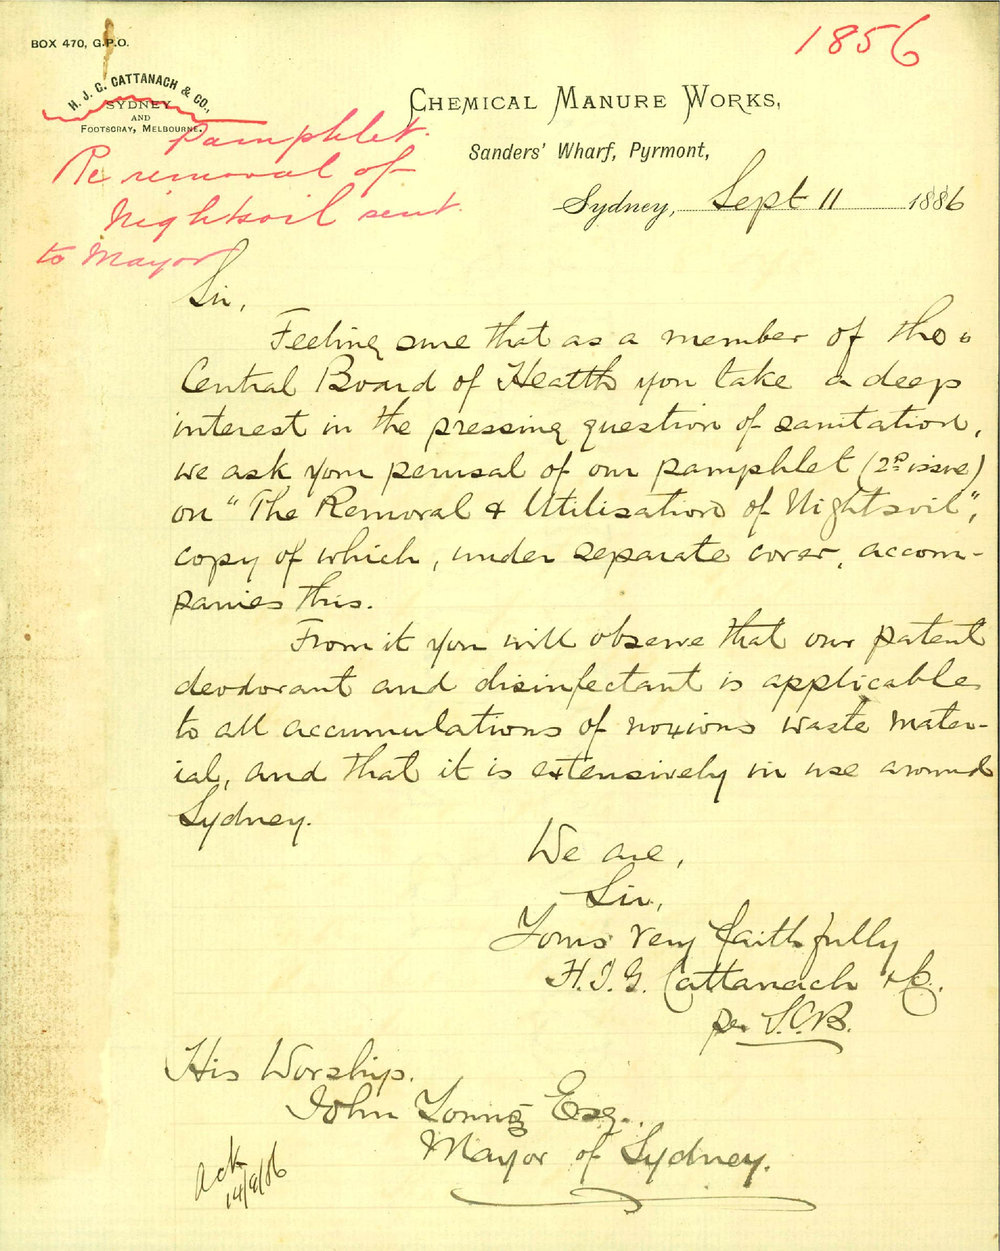 BOX 470, G.P.O.
1856
H. J. G. CATTANACH & CO.,
SYDNEY
AND
FOOTSCRAY, MELBOURNE.
CHEMICAL MANURE WORKS,
Sanders' Wharf, Pyrmont,
Sydney, Sept 11 1886
Pamphlet.
Re removal of
Nightsoil sent.
to Mayor
Sir,
Feeling sure that as a member of the
Central Board of Health you take a deep
interest in the pressing question of sanitation,
we ask your perusal of our pamphlet (2nd issue)
on "The Removal & Utilisation of Nightsoil",
copy of which, under separate cover, accom-
panies this.
From it you will observe that our patent
deodorant and disinfectant is applicable
to all accumulations of noxious waste mater-
ial, and that it is extensively in use around
Sydney.
We are,
Sir,
Yours very faithfully
H. J. G. Cattanach & Co.
per S.C.B.
His Worship.
John Young Esq.
Mayor of Sydney.
Ack
14/9/86